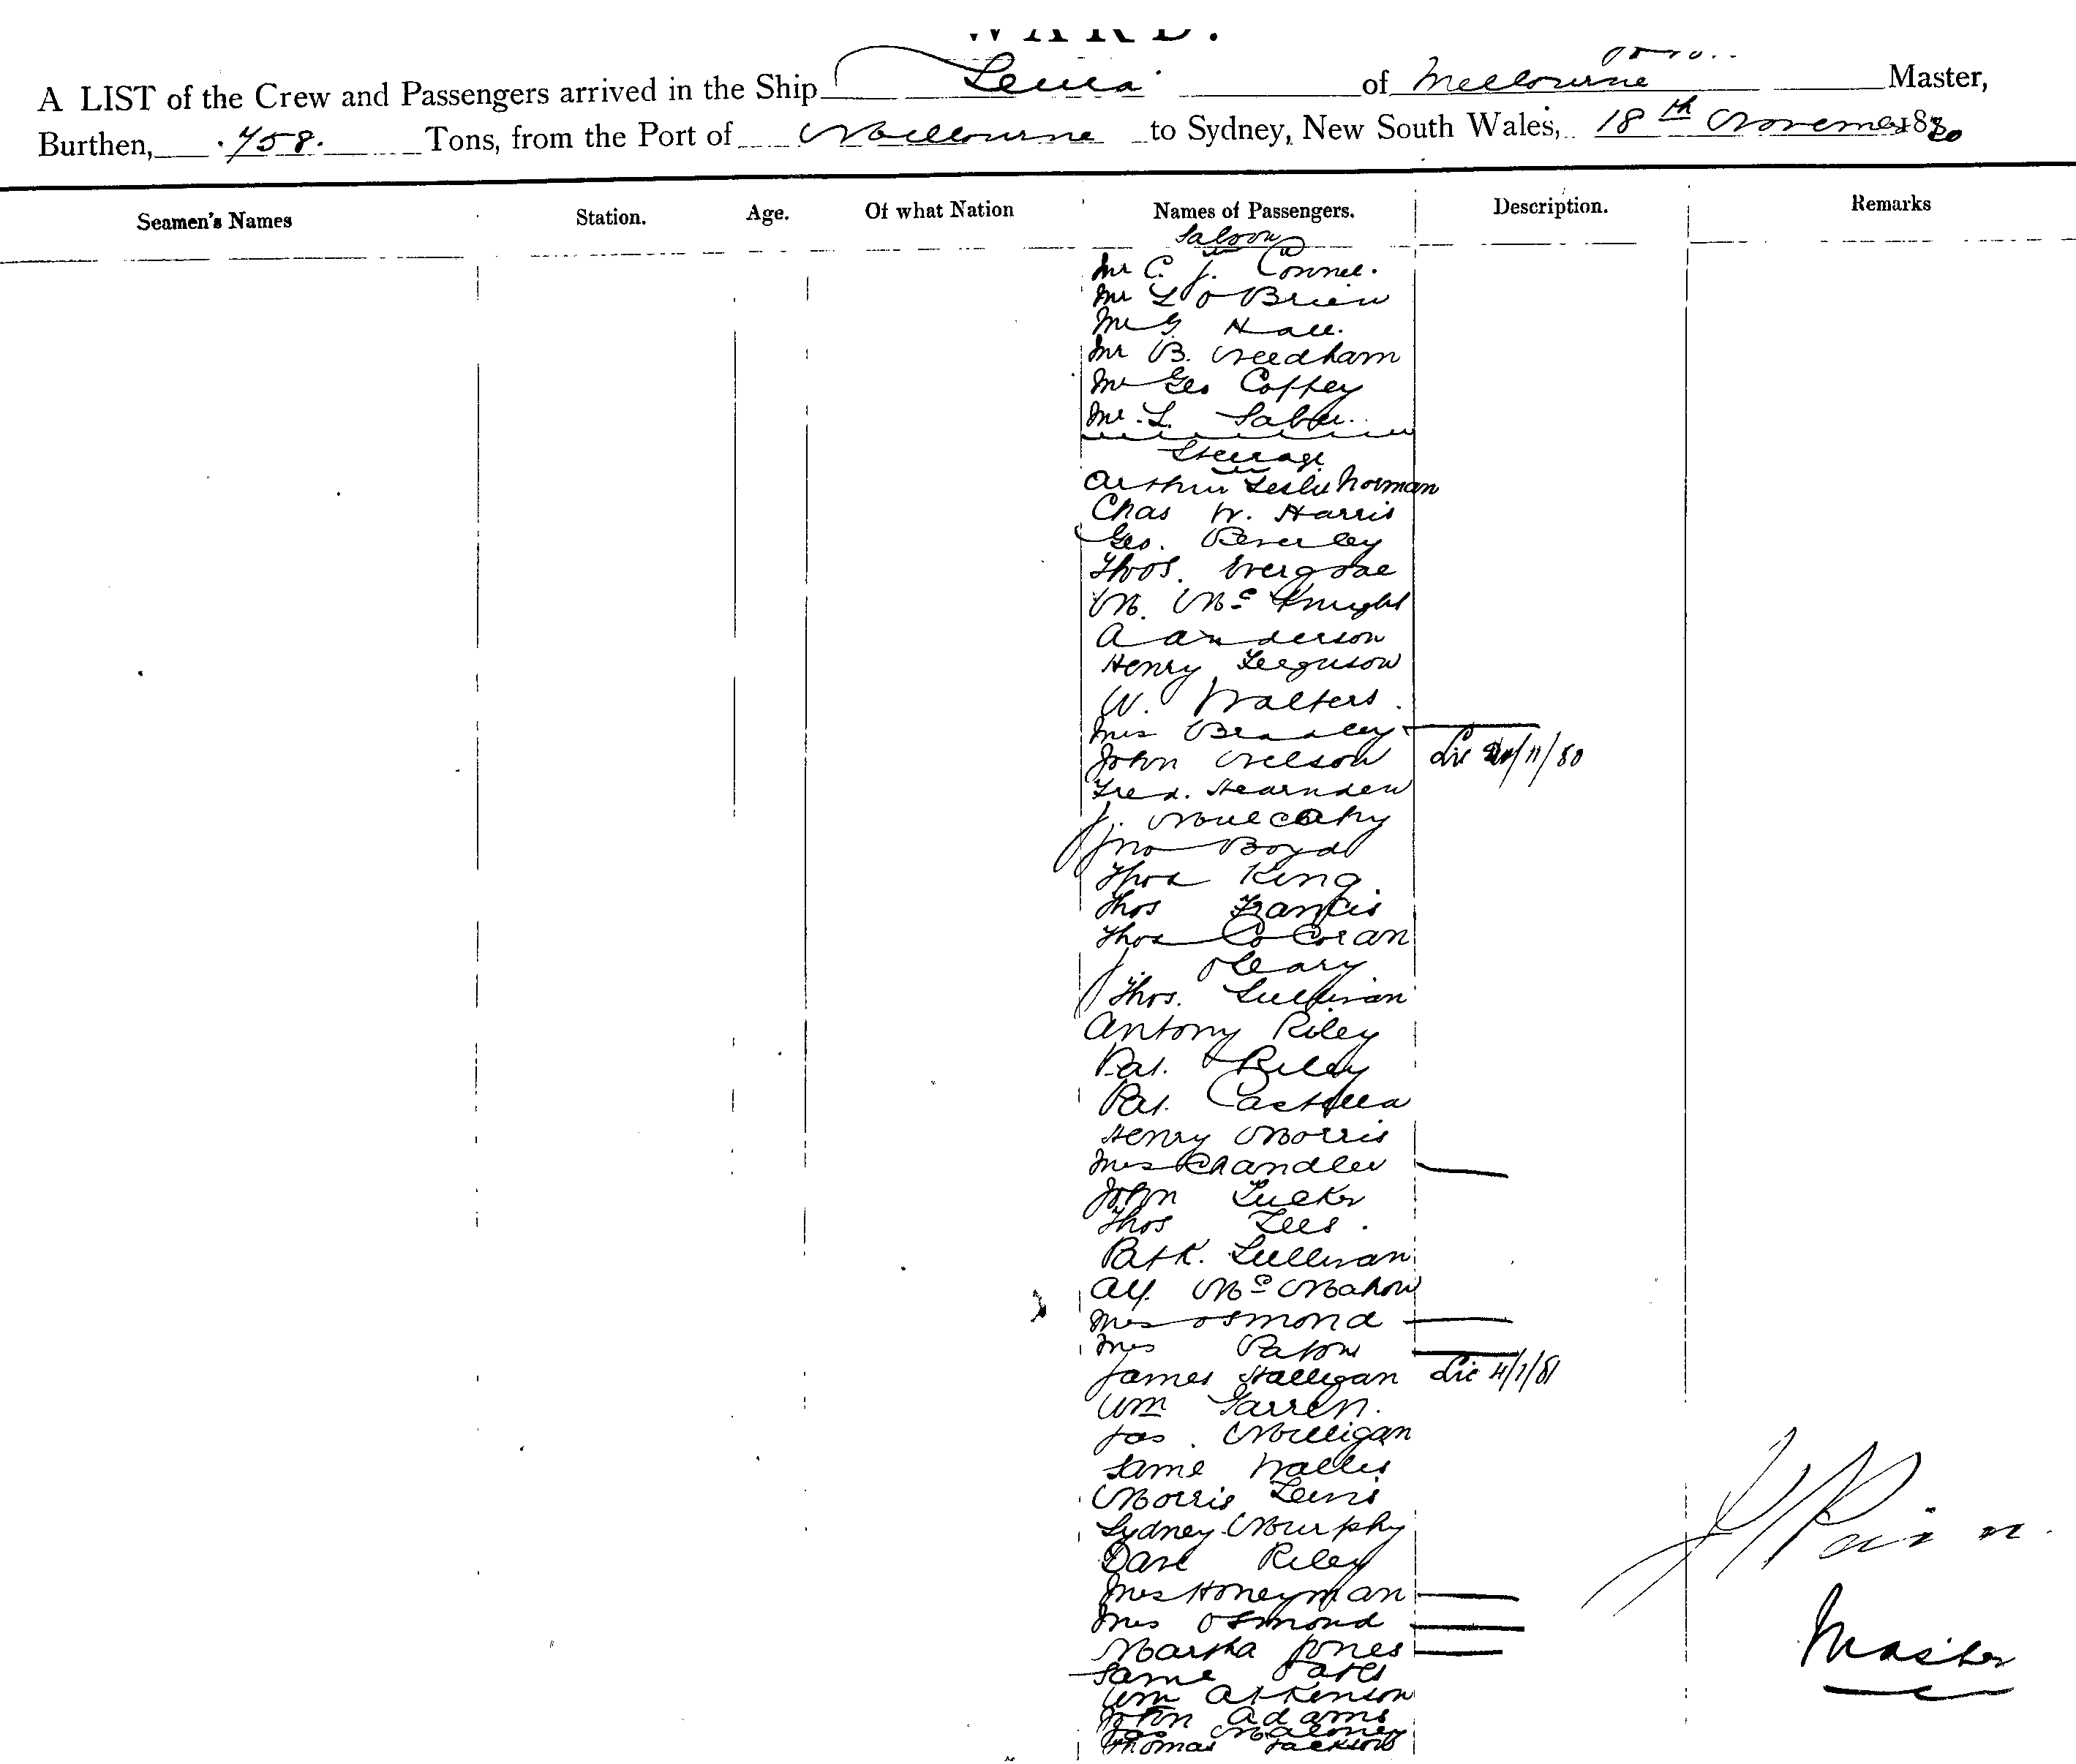 A LIST of the Crew and Passengers arrived in the Ship of Melbourne Master,
Burthen, 758. Tons, from the Port of Melbourne to Sydney, New South Wales, 18th November 1880
Seamen's Names Station. Age. Of what Nation Names of Passengers. Description. Remarks
Saloon
Mr C. J. Connel.
Mr L O Brien
Mr G Hall.
Mr B. Needham
Mr Geo Coffey
Mr. L.
Steerage
Arthur Leslie Norman
Chas W. Harris
Geo. Beverley
Thos.
M. Mc Knight
A Anderson
Henry Ferguson
W. Walters.
Mrs Beadley
John Nelson Lic 20/11/80
Fred. Hearnden
J. Mulcahy
Jno Boyd
Thos King
Thos Francis
Thos Co Coran
J. O Leary
Thos. Sullivan
Antony Riley
Pat. Riley
Pat. Castella
Henry Morris
Mrs Chandler
John Tucker
Thos Lees.
Patk. Sullivan
Alf. Mc Mahon
Mrs Osmond
Mrs Paton
James Halligan Lic 4/1/81
Wm Garren.
Jas. Mulligan
Saml Wallis
Morris Lewis
Sydney Murphy
Dave Riley
Mrs Honeyman
Mrs Osmond
Martha Jones
Saml
Wm Atkinson
John Adams
Jas Maloney
Thomas Jackson
Master